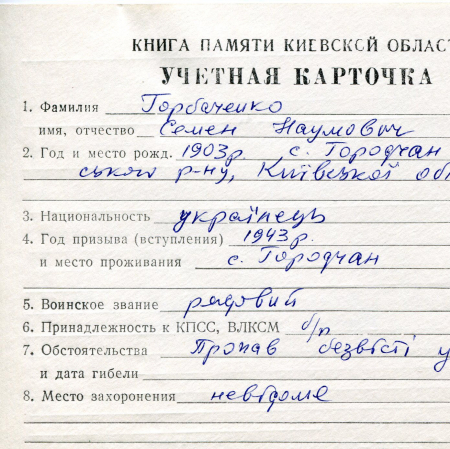 КНИГА ПАМЯТИ КИЕВСКОЙ ОБЛАС
УЧЕТНАЯ КАРТОЧКА
1. Фамилия Горбаченко
имя, отчество Семен Наумович
2. Год и место рожд. 1903р. с. Городчан
ського р-ну, Київської об
3. Национальность українець
4. Год призыва (вступления) 1943р.
и место проживания с. Городчан
5. Воинское звание рядовий
6. Принадлежность к КПСС, ВЛКСМ б/п
7. Обстоятельства Пропав безвісті у
и дата гибели
8. Место захоронения невідоме